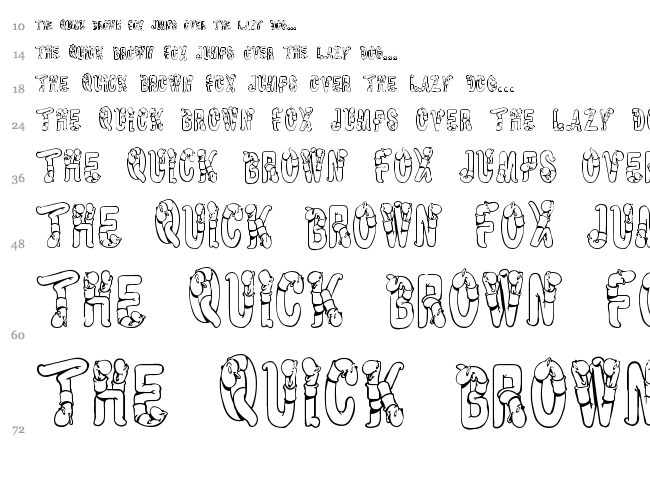 10 THE QUICK BROWN FOX JUMPS OVER THE LAZY DOG...
14 THE QUICK BROWN FOX JUMPS OVER THE LAZY DOG...
18 THE QUICK BROWN FOX JUMPS OVER THE LAZY DOG...
24 THE QUICK BROWN FOX JUMPS OVER THE LAZY DO
36 THE QUICK BROWN FOX JUMPS OVER
48 THE QUICK BROWN FOX JUM
60 THE QUICK BROWN FO
72 THE QUICK BROWN